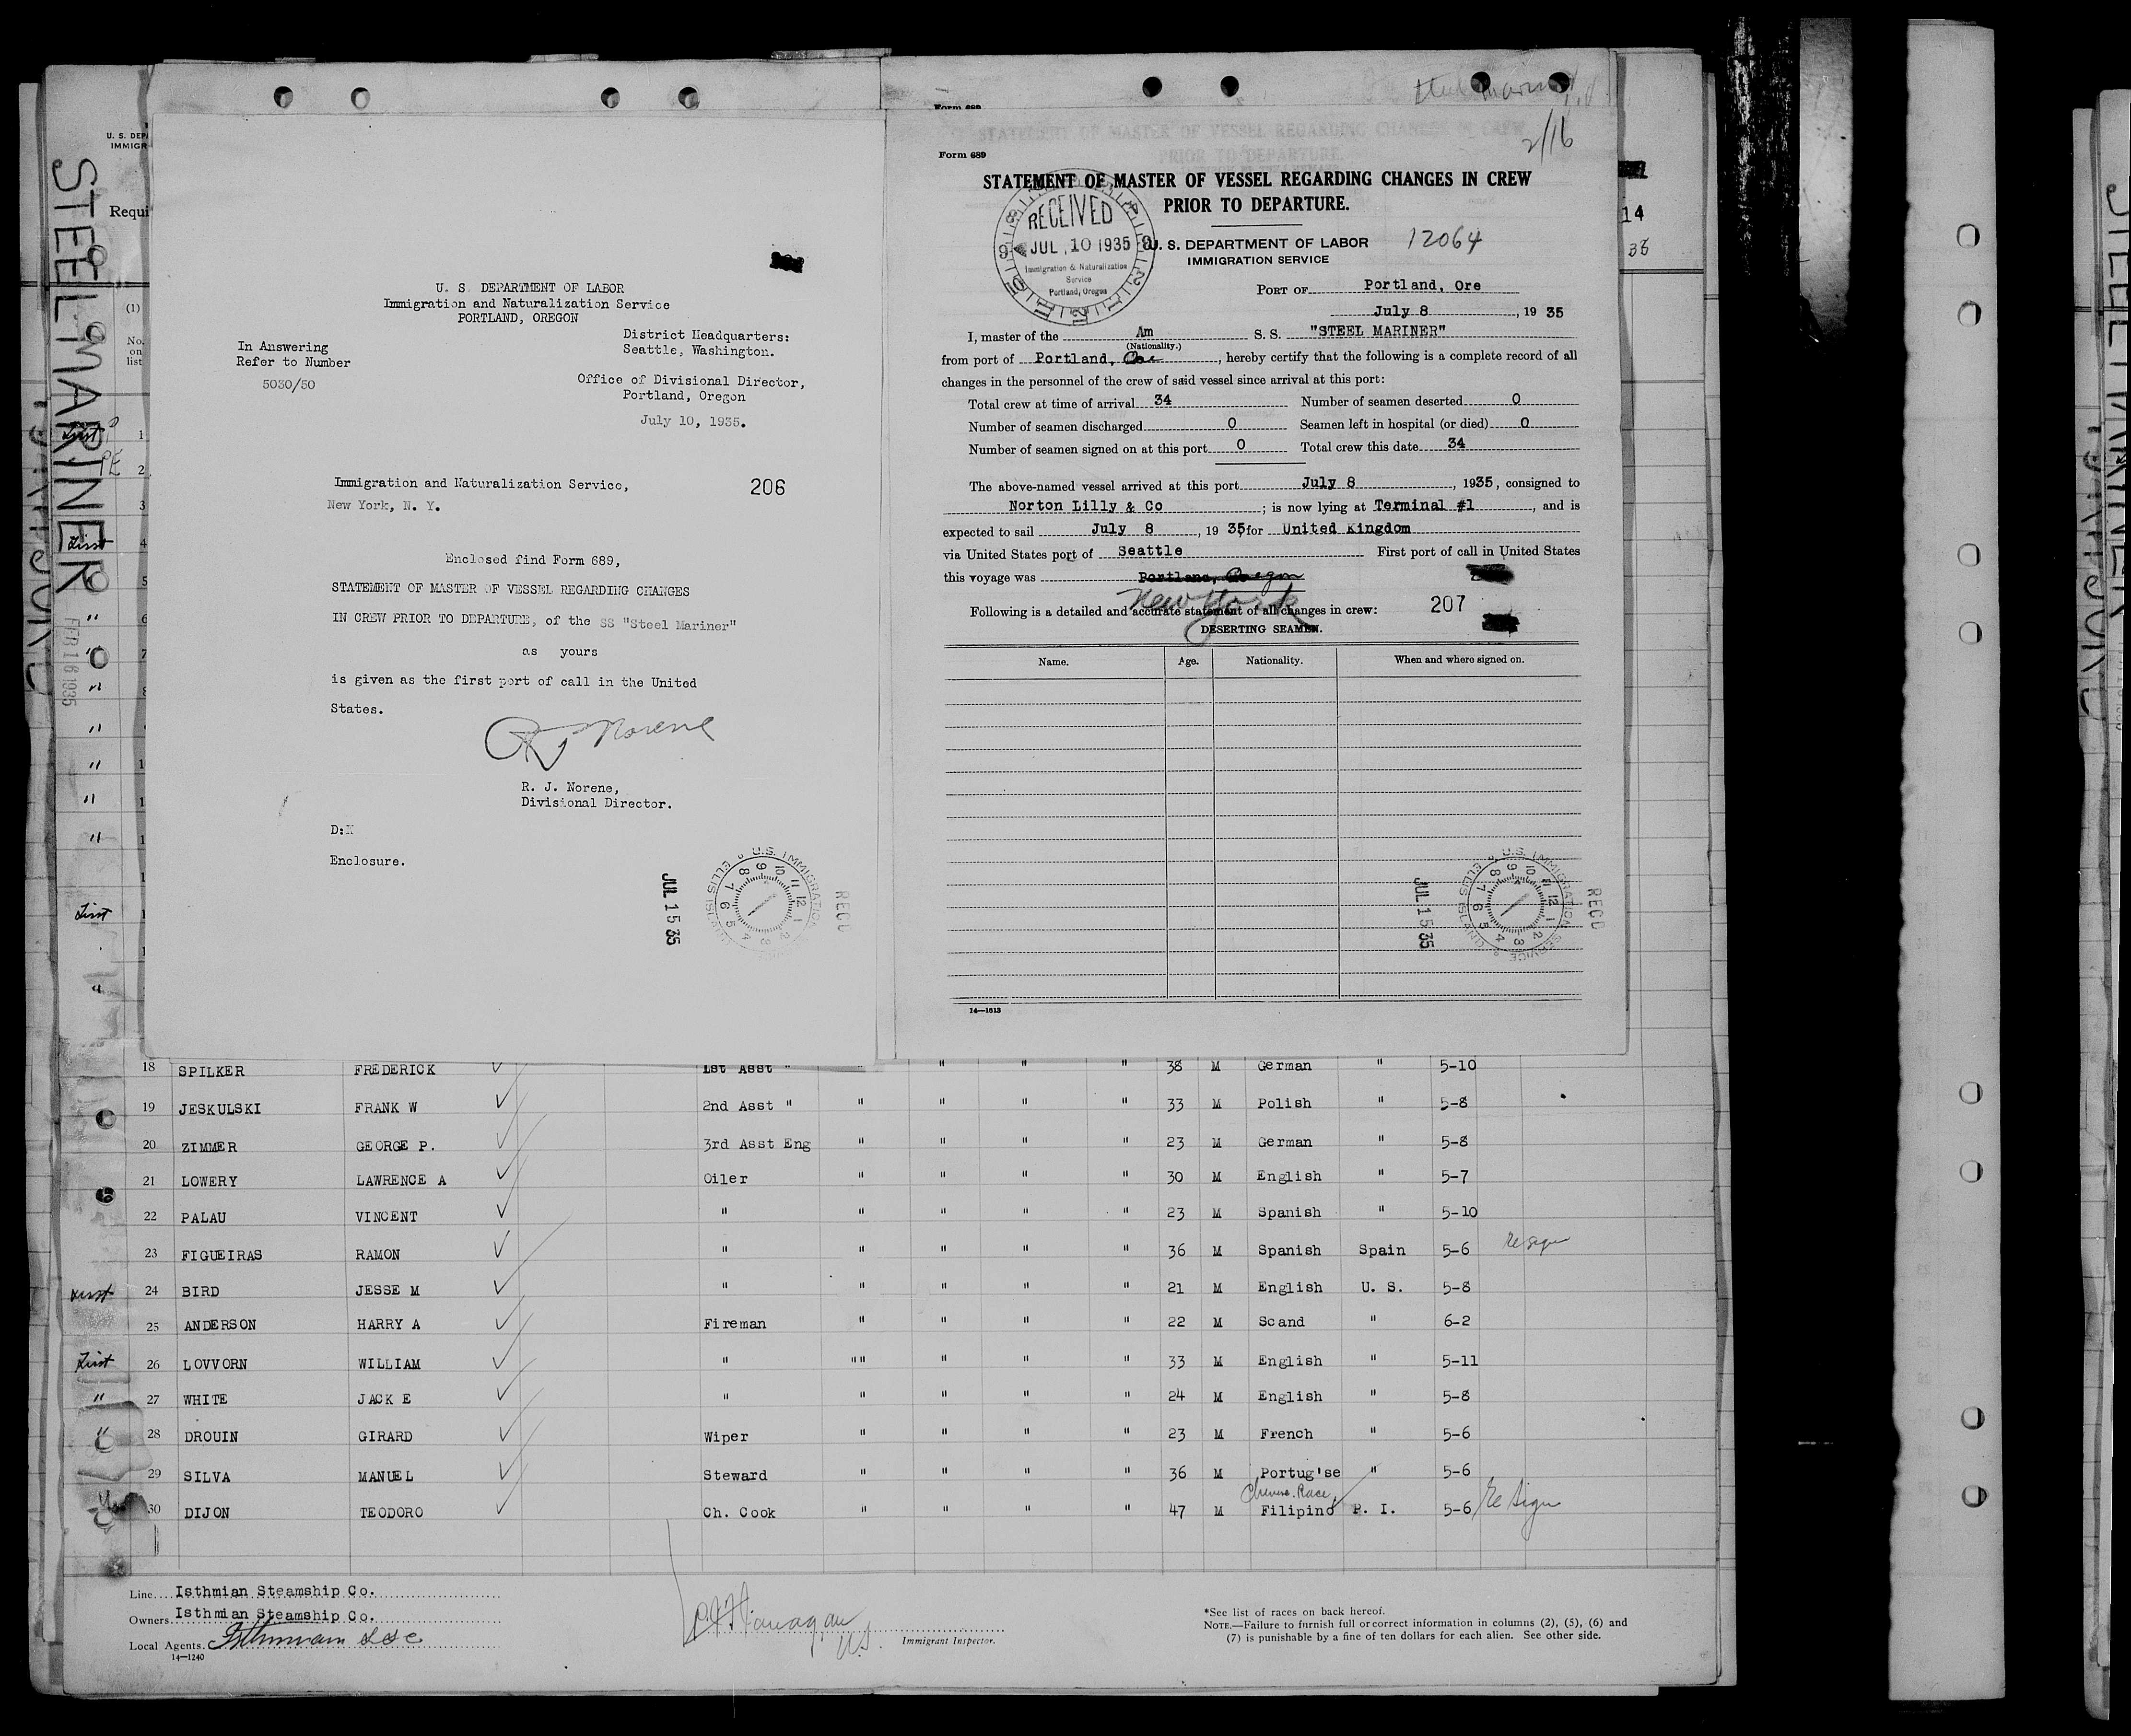 STEELMARINER
FEB 16 1935
U. S. DEP
IMMIGR
Requi
(1)
No.
on
list
U. S. DEPARTMENT OF LABOR
Immigration and Naturalization Service
PORTLAND, OREGON
District Headquarters:
Seattle, Washington.
In Answering
Refer to Number
5030/50
Office of Divisional Director,
Portland, Oregon
July 10, 1935.
Immigration and Naturalization Service,
206
New York, N. Y.
Enclosed find Form 689,
STATEMENT OF MASTER OF VESSEL REGARDING CHANGES
IN CREW PRIOR TO DEPARTURE, of the SS "Steel Mariner"
as yours
is given as the first port of call in the United
States.
R J Norene
R. J. Norene,
Divisional Director.
D:K
Enclosure.
JUL 15 35
U.S. IMMIGRATION SERVICE ELLIS ISLAND
RECD
Form 689
2/16
Form 689
STATEMENT OF MASTER OF VESSEL REGARDING CHANGES IN CREW
PRIOR TO DEPARTURE.
RECEIVED
JUL 10 1935
Immigration & Naturalization
Service
Portland, Oregon
U. S. DEPARTMENT OF LABOR 12064
IMMIGRATION SERVICE
PORT OF Portland, Ore
July 8, 1935
I, master of the Am S. S. "STEEL MARINER"
(Nationality.)
from port of Portland, Ore, hereby certify that the following is a complete record of all
changes in the personnel of the crew of said vessel since arrival at this port:
Total crew at time of arrival 34 Number of seamen deserted 0
Number of seamen discharged 0 Seamen left in hospital (or died) 0
Number of seamen signed on at this port 0 Total crew this date 34
The above-named vessel arrived at this port July 8, 1935, consigned to
Norton Lilly & Co; is now lying at Terminal #1, and is
expected to sail July 8, 1935, for United Kingdom
via United States port of Seattle First port of call in United States
this voyage was Portland, Oregon
New York
Following is a detailed and accurate statement of all changes in crew: 207
DESERTING SEAMEN.
Name. Age. Nationality. When and where signed on.
JUL 15 35
U.S. IMMIGRATION SERVICE ELLIS ISLAND
RECD
14—1613
14
35
18 SPILKER FREDERICK 1st Asst " " " " 38 M German " 5-10
19 JESKULSKI FRANK W 2nd Asst " " " " " 33 M Polish " 5-8
20 ZIMMER GEORGE P. 3rd Asst Eng " " " " 23 M German " 5-8
21 LOWERY LAWRENCE A Oiler " " " " 30 M English " 5-7
22 PALAU VINCENT " " " " " 23 M Spanish " 5-10
23 FIGUEIRAS RAMON " " " " " 36 M Spanish Spain 5-6 resign
First 24 BIRD JESSE M " " " " " 21 M English U. S. 5-8
25 ANDERSON HARRY A Fireman " " " " 22 M Scand " 6-2
First 26 LOVVORN WILLIAM " "" " " " 33 M English " 5-11
" 27 WHITE JACK E " " " " " 24 M English " 5-8
" 28 DROUIN GIRARD Wiper " " " " 23 M French " 5-6
29 SILVA MANUEL Steward " " " " 36 M Portug'se " 5-6
Chinese Race
30 DIJON TEODORO Ch. Cook " " " " 47 M Filipino P. I. 5-6 Resign
Line Isthmian Steamship Co.
Owners Isthmian Steamship Co.
Local Agents. Isthmian SSC
14—1240
Immigrant Inspector.
*See list of races on back hereof.
NOTE.—Failure to furnish full or correct information in columns (2), (5), (6) and
(7) is punishable by a fine of ten dollars for each alien. See other side.